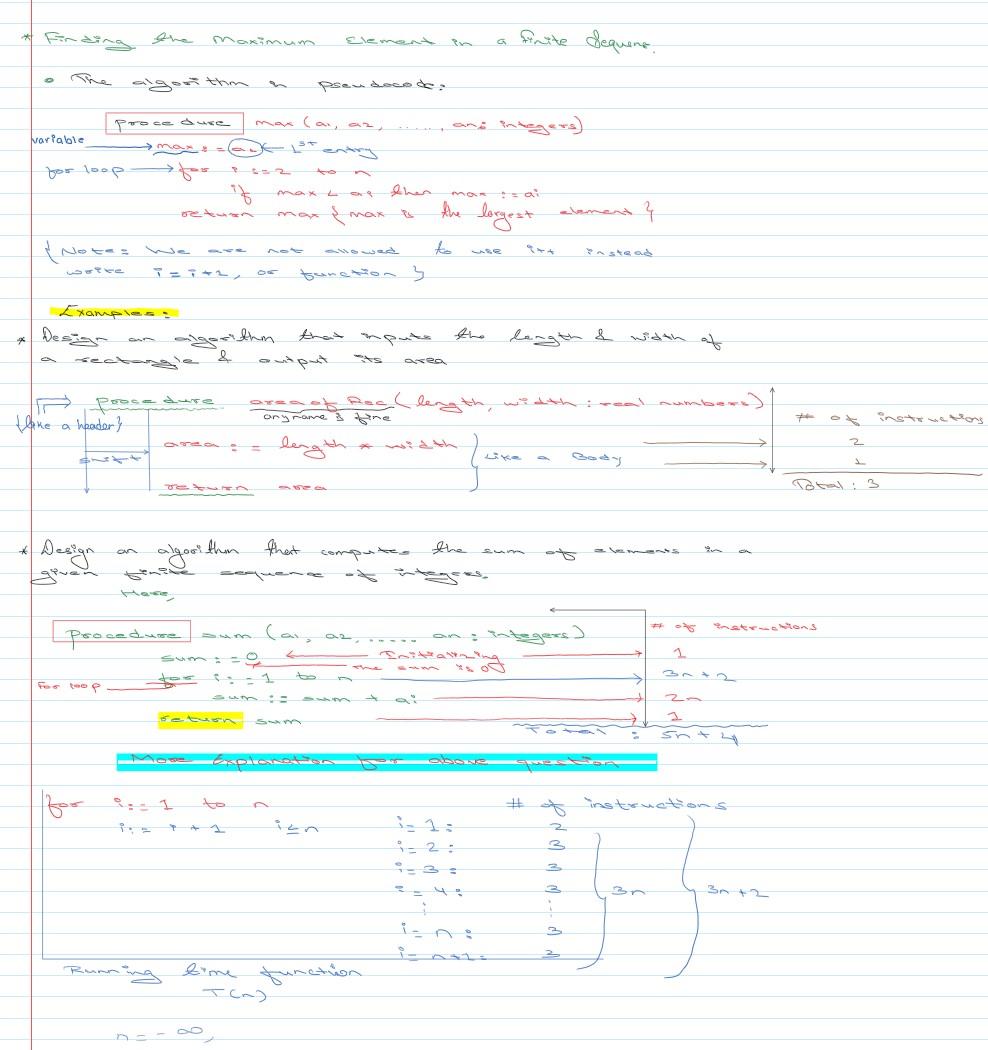 * Finding the Maximum Element in a finite Sequence.
• The algorithm in pseudocode:
procedure max (a1, a2, ....., an: integers)
variable → max := a1 ← 1st entry
for loop → for i := 2 to n
if max < ai then max := ai
return max { max is the largest element }
{ Note: We are not allowed to use i++ instead
write i = i + 1, or function }
Examples:
* Design an algorithm that inputs the length & width of
a rectangle & output its area
procedure area of Rec (length, width : real numbers)
{like a header} any name is fine
# of instructions
area := length * width 2
shift Like a Body
1
return area Total : 3
* Design an algorithm that computes the sum of elements in a
given finite sequence of integers.
Here,
Procedure sum (a1, a2, ..... an : integers)
# of instructions
sum := 0 ← Initializing → 1
the sum is 0
For loop for i := 1 to n → 3n + 2
sum := sum + ai → 2n
return sum → 1
Total : 5n + 4
More Explanation for above question
for i := 1 to n # of instructions
i := i + 1 i ≤ n i = 1 : 2
i = 2 : 3
i = 3 : 3
i = 4 : 3 3n 3n + 2
⋮ ⋮
i = n : 3
i = n+1 : 3
Running time function
T(n)
n = - ∞,